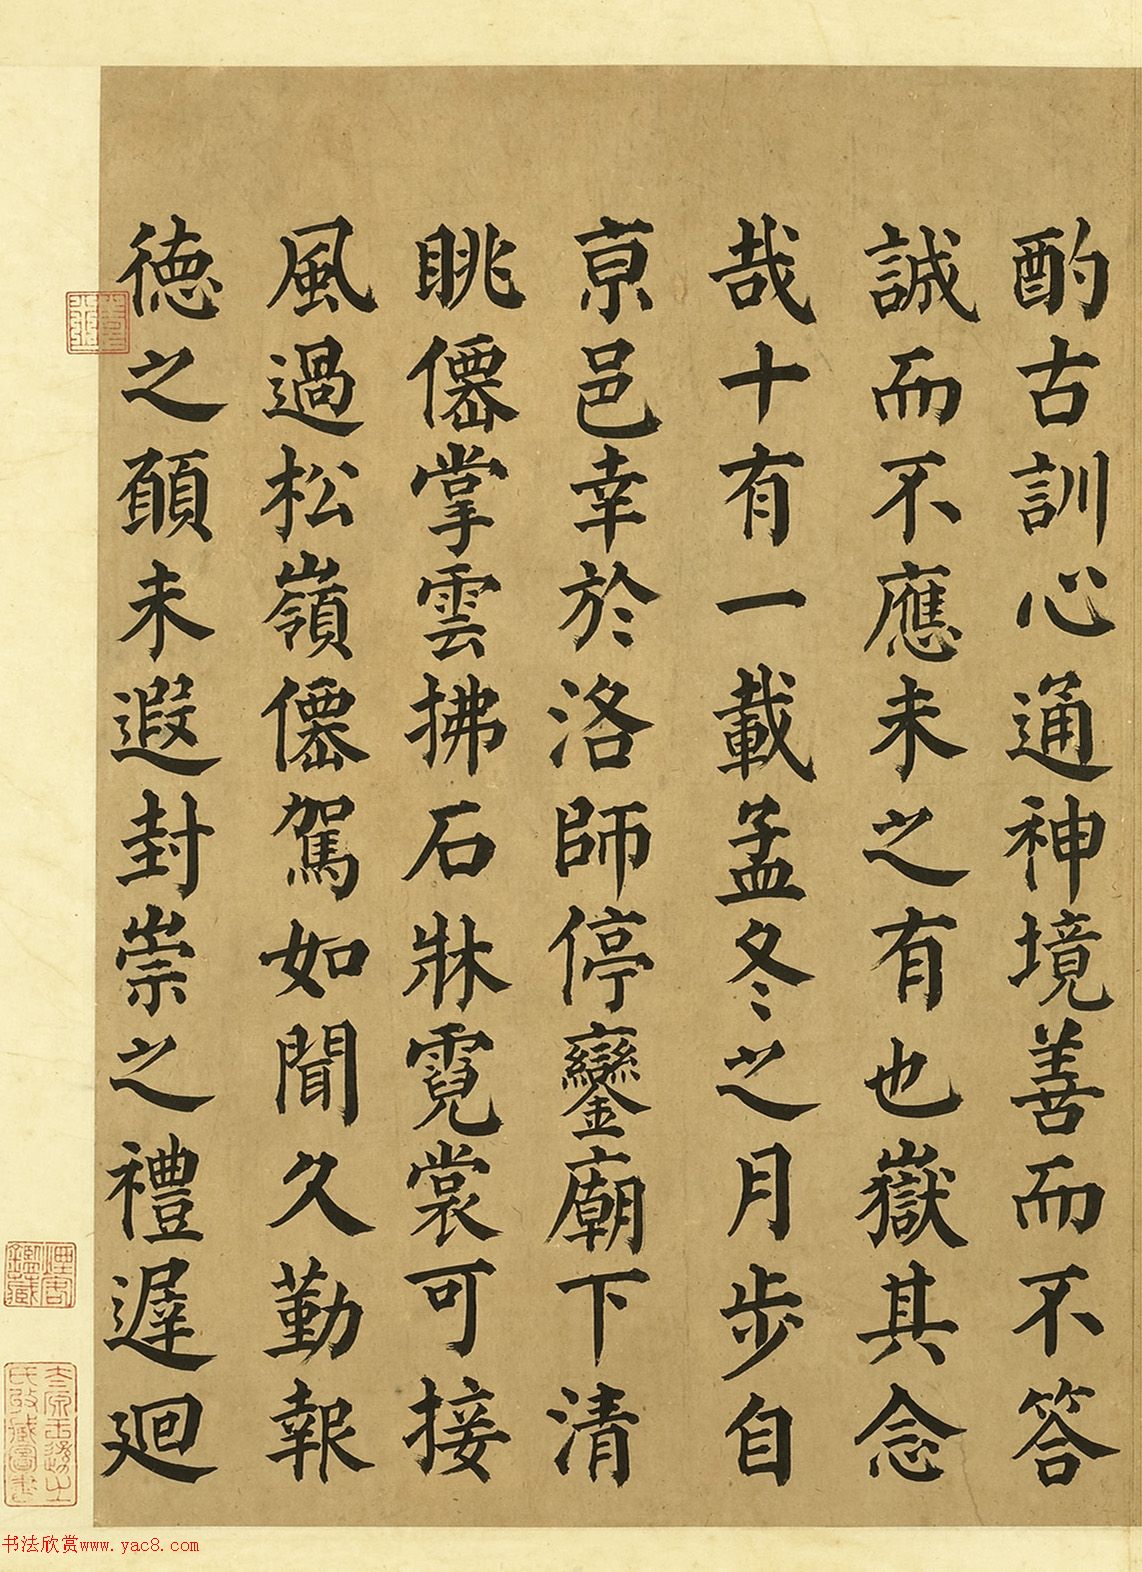 酌古訓心通神境善而不答
誠而不應未之有也嶽其念
哉十有一載孟冬之月步自
京邑幸於洛師停鑾廟下清
眺僊掌雲拂石牀霓裳可接
風過松嶺僊駕如聞久勤報
德之願未遐封崇之禮遲迴
煙客鑑藏
书法欣赏www.yac8.com